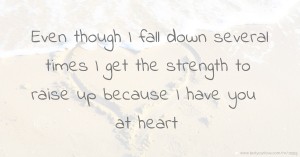 Even though I fall down several
times I get the strength to
raise up because I have you
at heart